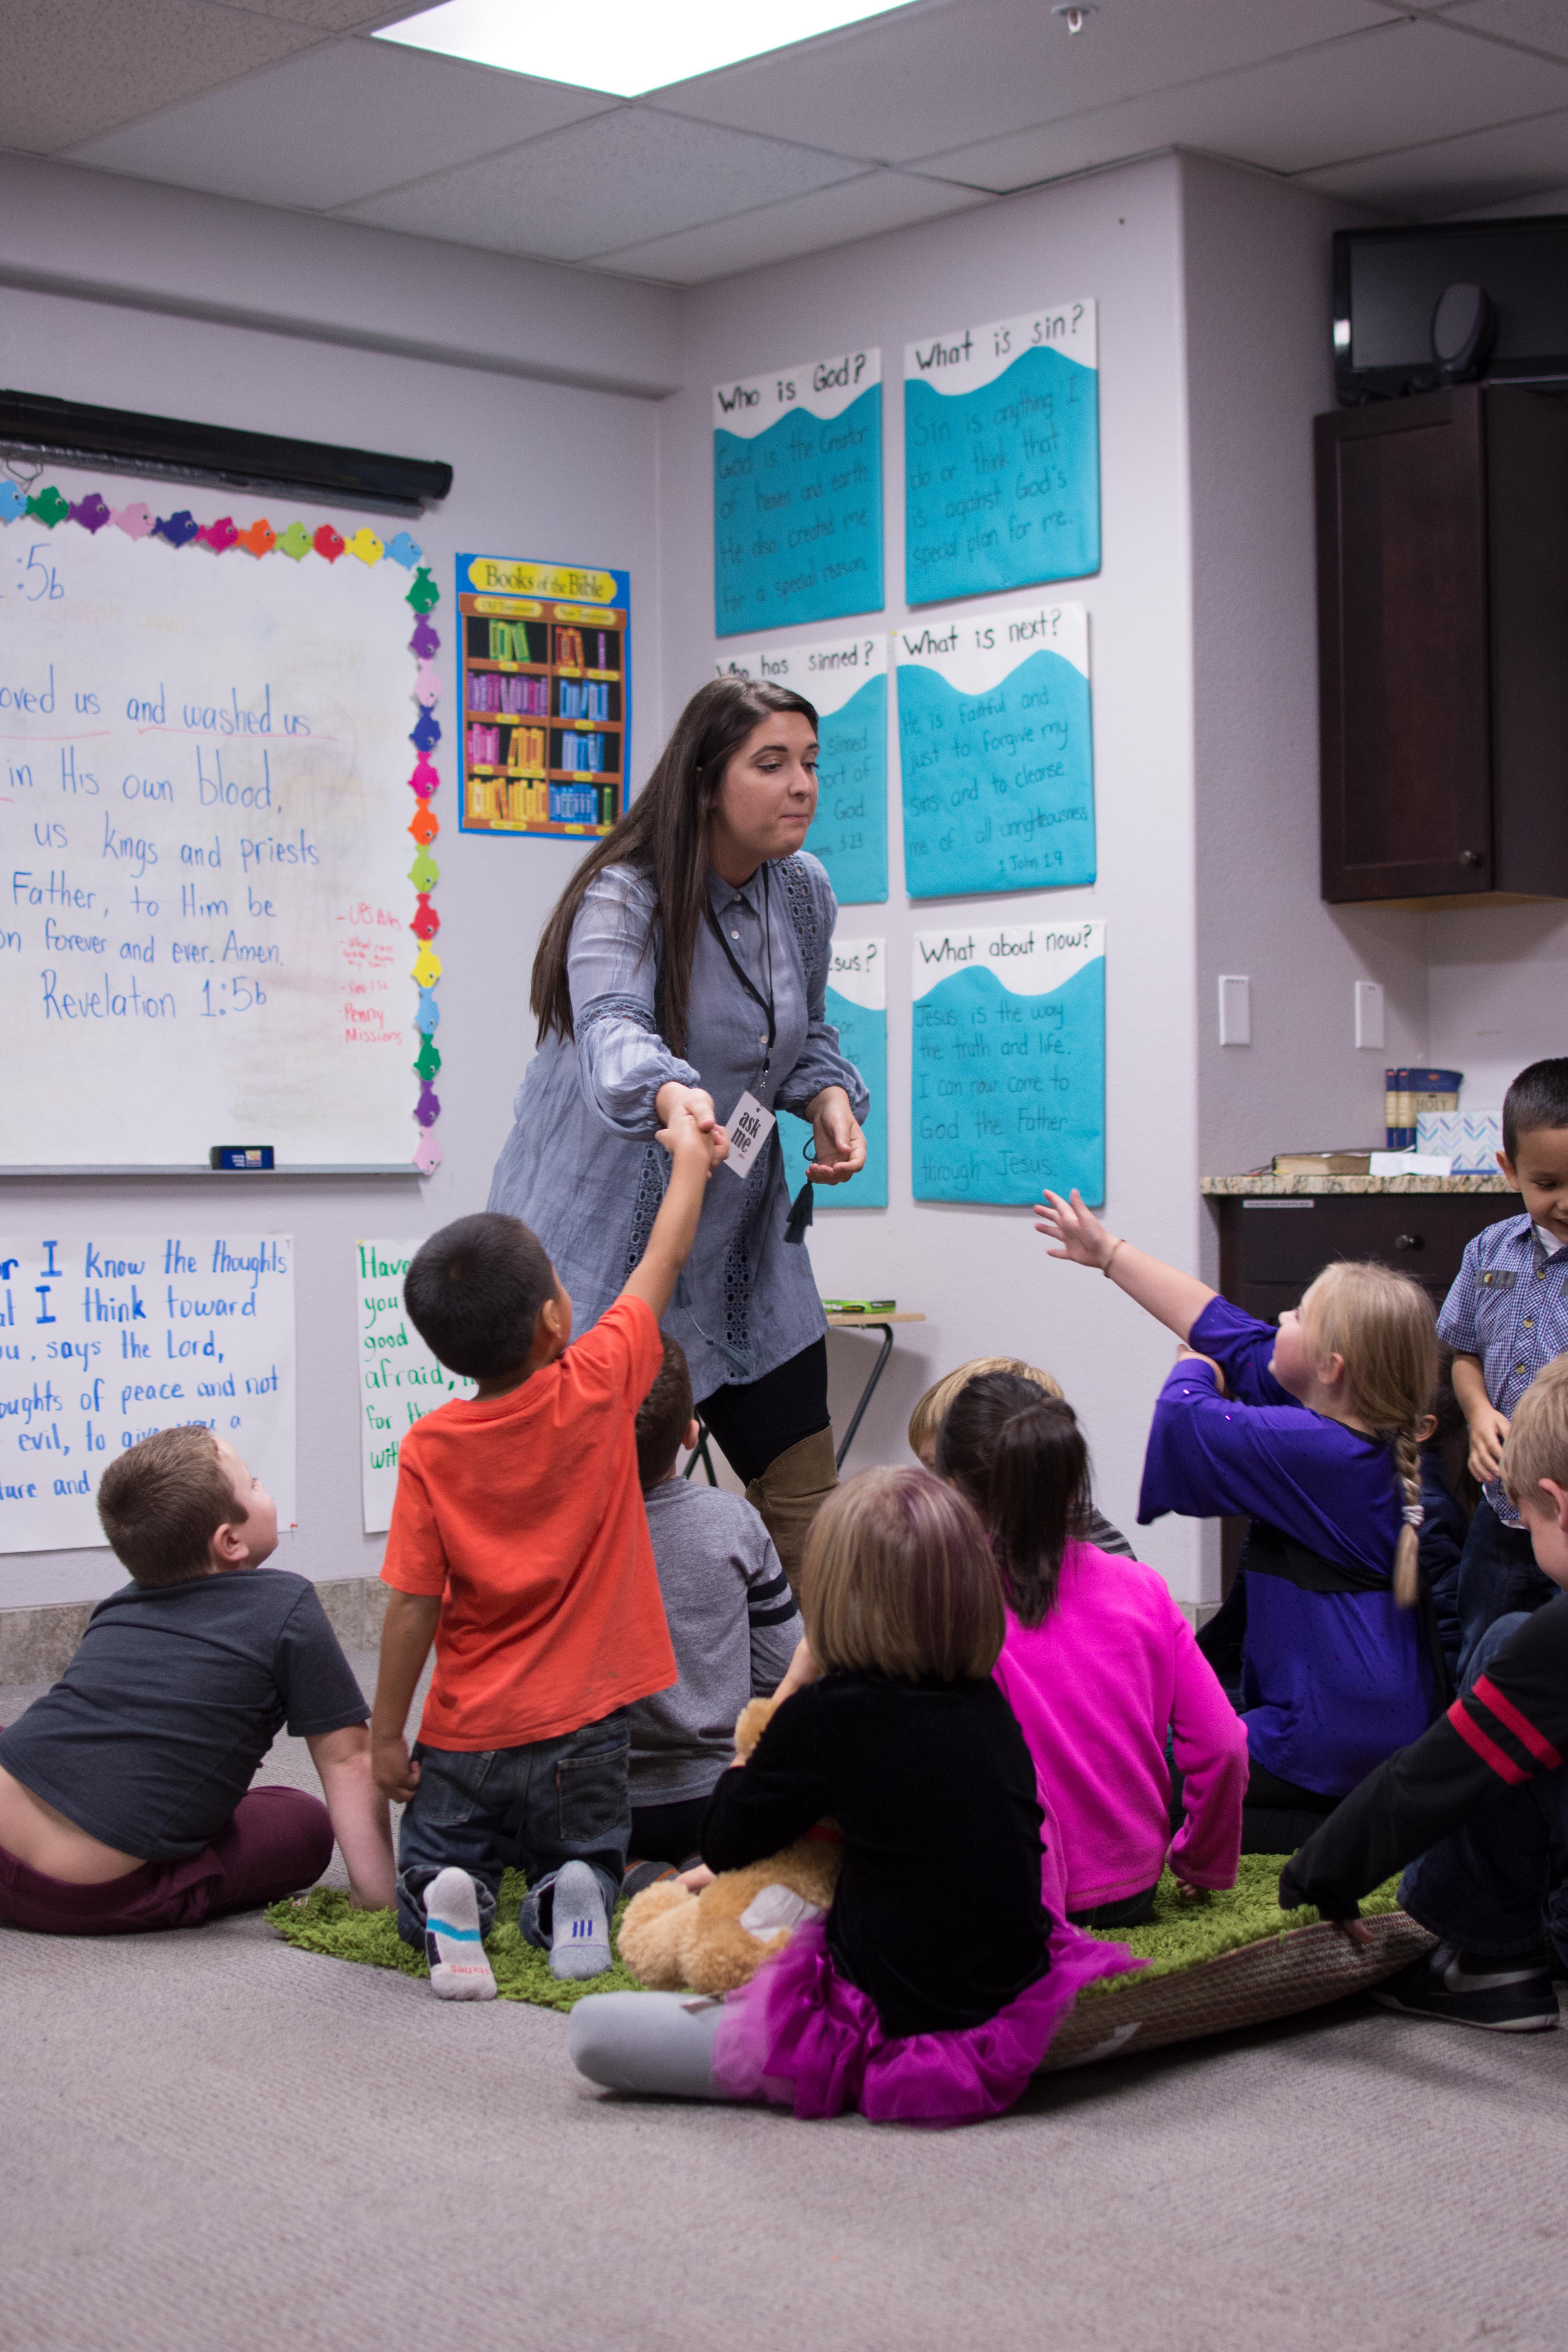 1:5b
oved us and washed us
in His own blood,
us kings and priests
Father, to Him be
on forever and ever. Amen.
Revelation 1:5b
Penny
Missions
Books of the Bible
Old Testament
New Testament
Who is God?
God is the Creator
of heaven and earth.
He also created me
for a special reason.
What is sin?
Sin is anything I
do or think that
is against God's
special plan for me.
Who has sinned?
sinned
ort of
God.
ans 3:23
What is next?
He is faithful and
just to forgive my
sins and to cleanse
me of all unrighteousness
1 John 1:9
esus?
on
to
What about now?
Jesus is the way
the truth and life.
I can now come to
God the Father
through Jesus.
ask
me
HOLY
or I know the thoughts
at I think toward
ou, says the Lord,
oughts of peace and not
evil, to give you a
ture and
Have
you
good
afraid,
for the
with